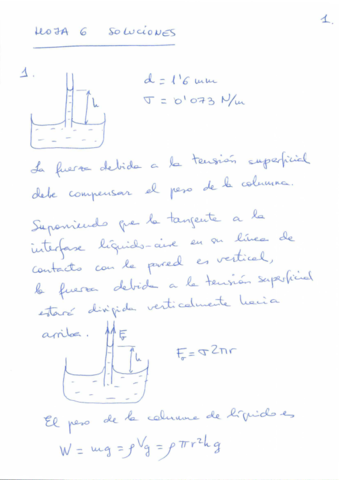 1.
HOJA 6 SOLUCIONES
1.
h
d = 1'6 mm
σ = 0'073 N/m
La fuerza debida a la tensión superficial
debe compensar el peso de la columna.
Suponiendo que la tangente a la
interfase líquido-aire en su línea de
contacto con la pared es vertical,
la fuerza debida a la tensión superficial
estará dirigida verticalmente hacia
arriba.
Fσ
h
Fσ = σ2πr
El peso de la columna de líquido es
W = mg = ρVg = ρπr²hg